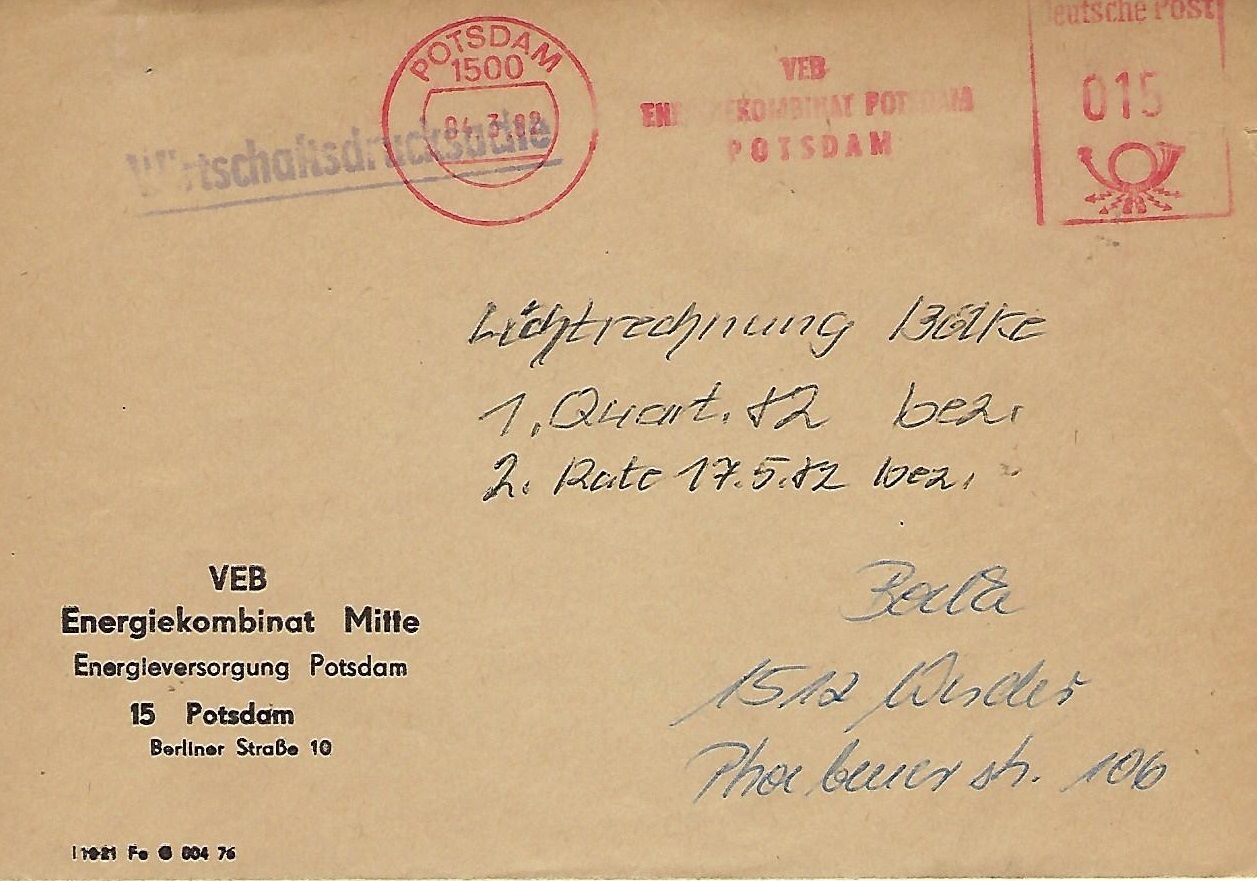 Deutsche Post
POTSDAM
1500
04.3.82
VEB
ENERGIEKOMBINAT POTSDAM
POTSDAM
015
Wirtschaftsdrucksache
Lichtrechnung Bölke
1. Quart. 82 bez.
2. Rate 17.5.82 bez.
1512 Werder
Phoebenerstr. 106
VEB
Energiekombinat Mitte
Energieversorgung Potsdam
15 Potsdam
Berliner Straße 10
Fe G 004 76